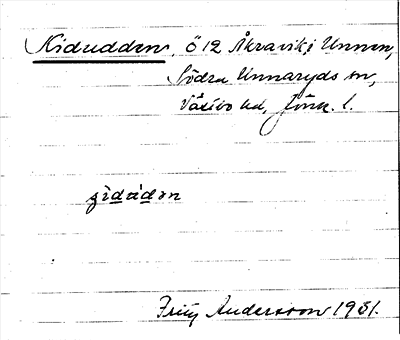 Kidudden, Ö 12 Åkravik i Unnen,
Södra Unnaryds sn,
Västbo hd, Jönk. l.
gidùdən
Fritz Andersson 1931.